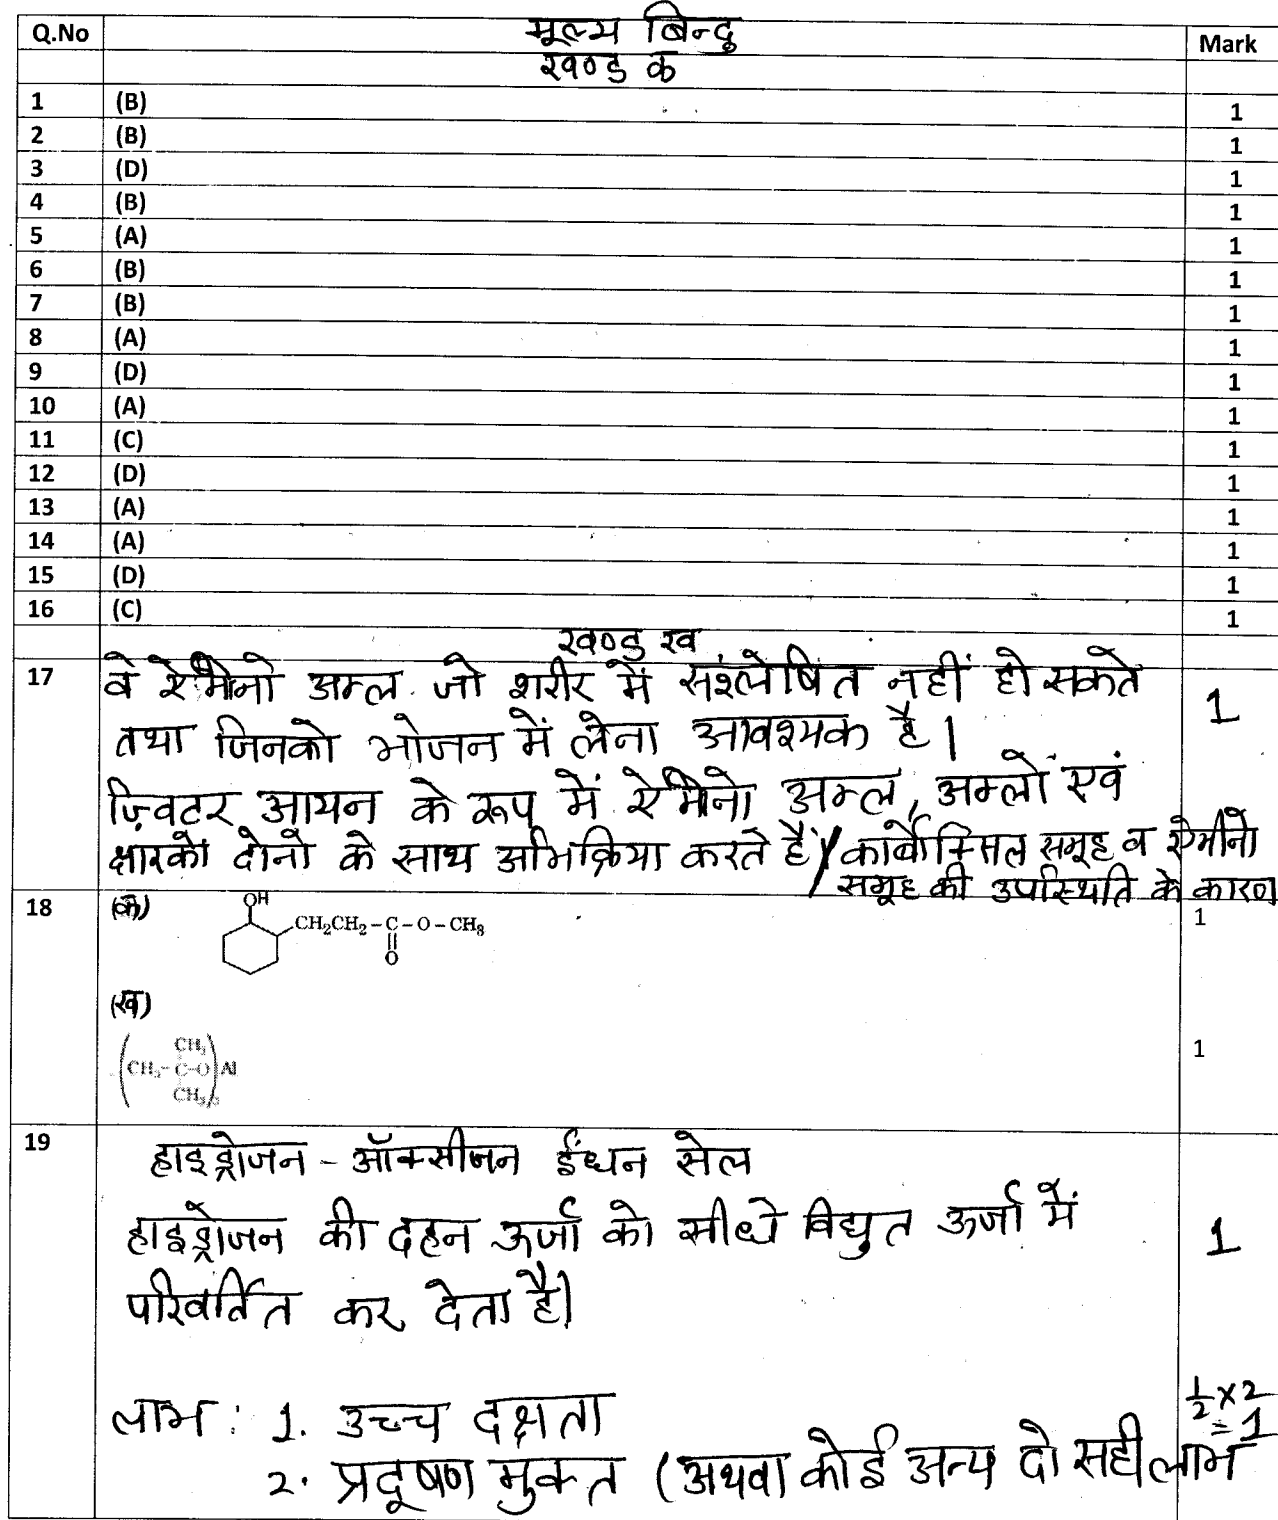 Q.No मूल्य बिन्दु Mark
खण्ड क
1 (B) 1
2 (B) 1
3 (D) 1
4 (B) 1
5 (A) 1
6 (B) 1
7 (B) 1
8 (A) 1
9 (D) 1
10 (A) 1
11 (C) 1
12 (D) 1
13 (A) 1
14 (A) 1
15 (D) 1
16 (C) 1
खण्ड ख
17 वे ऐमीनो अम्ल जो शरीर में संश्लेषित नहीं हो सकते 1
तथा जिनको भोजन में लेना आवश्यक है।
ज़्विटर आयन के रूप में ऐमीनो अम्ल, अम्लों एवं
क्षारको दोनो के साथ अभिक्रिया करते हैं / कार्बोक्सिल समूह व ऐमीनो
समूह की उपस्थिति के कारण
18 (क) OH 1
CH₂CH₂-C-O-CH₃
O
(ख)
CH₃ 1
CH₃-C-O Al
CH₃ 3
19 हाइड्रोजन - ऑक्सीजन ईंधन सेल
हाइड्रोजन की दहन ऊर्जा को सीधे विद्युत ऊर्जा में 1
परिवर्तित कर देता है।
लाभ : 1. उच्च दक्षता ½×2
=1
2. प्रदूषण मुक्त (अथवा कोई अन्य दो सही लाभ